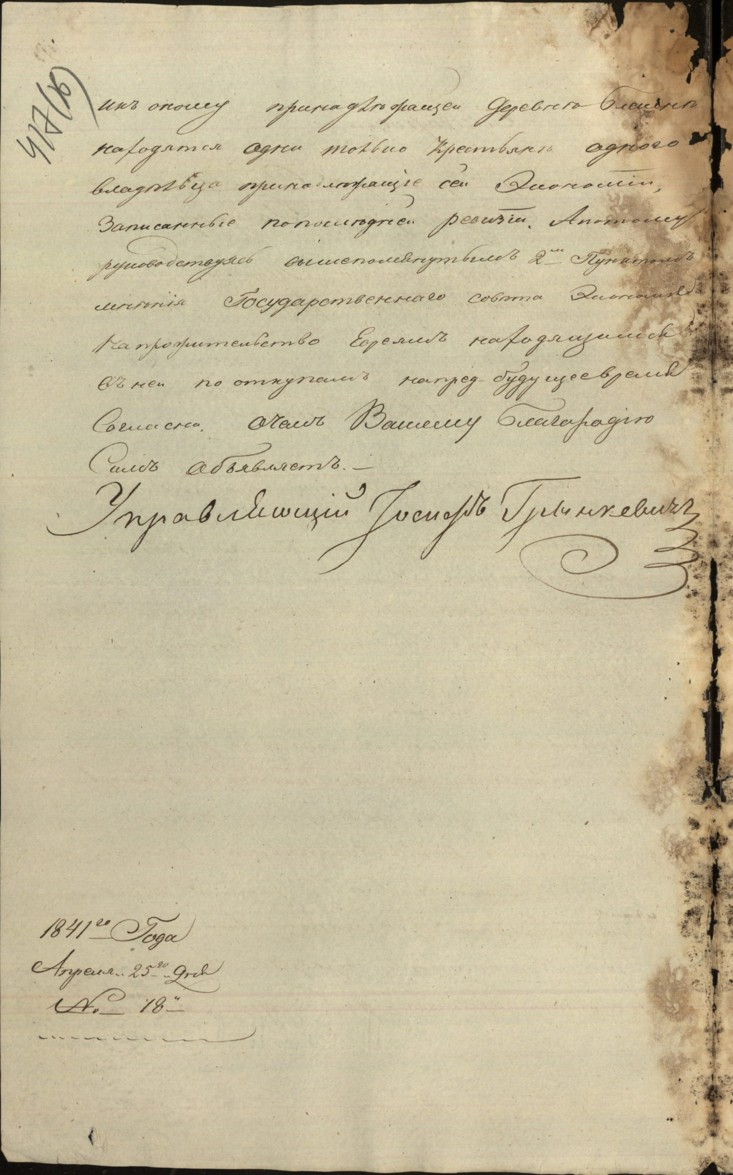 417(об)
икъ оному принадлежащей деревне
находятся одни только Крестьяне одного
владельца принадлежащіе сей Экономіи,
Записанные по последней ревизіи. А потому
руководствуясь вышепомянутымъ 2мъ Пунктомъ
мненія Государственнаго совета Экономія
на прожительство Евреямъ находящимся
въ ней по откупамъ напредбудущее время
Согласна. очемъ Вашему Благородію
Симъ объявляетъ.
Управляющій Іосифъ Грынкевичъ
1841го Года
Апреля 25го дня
№ 18